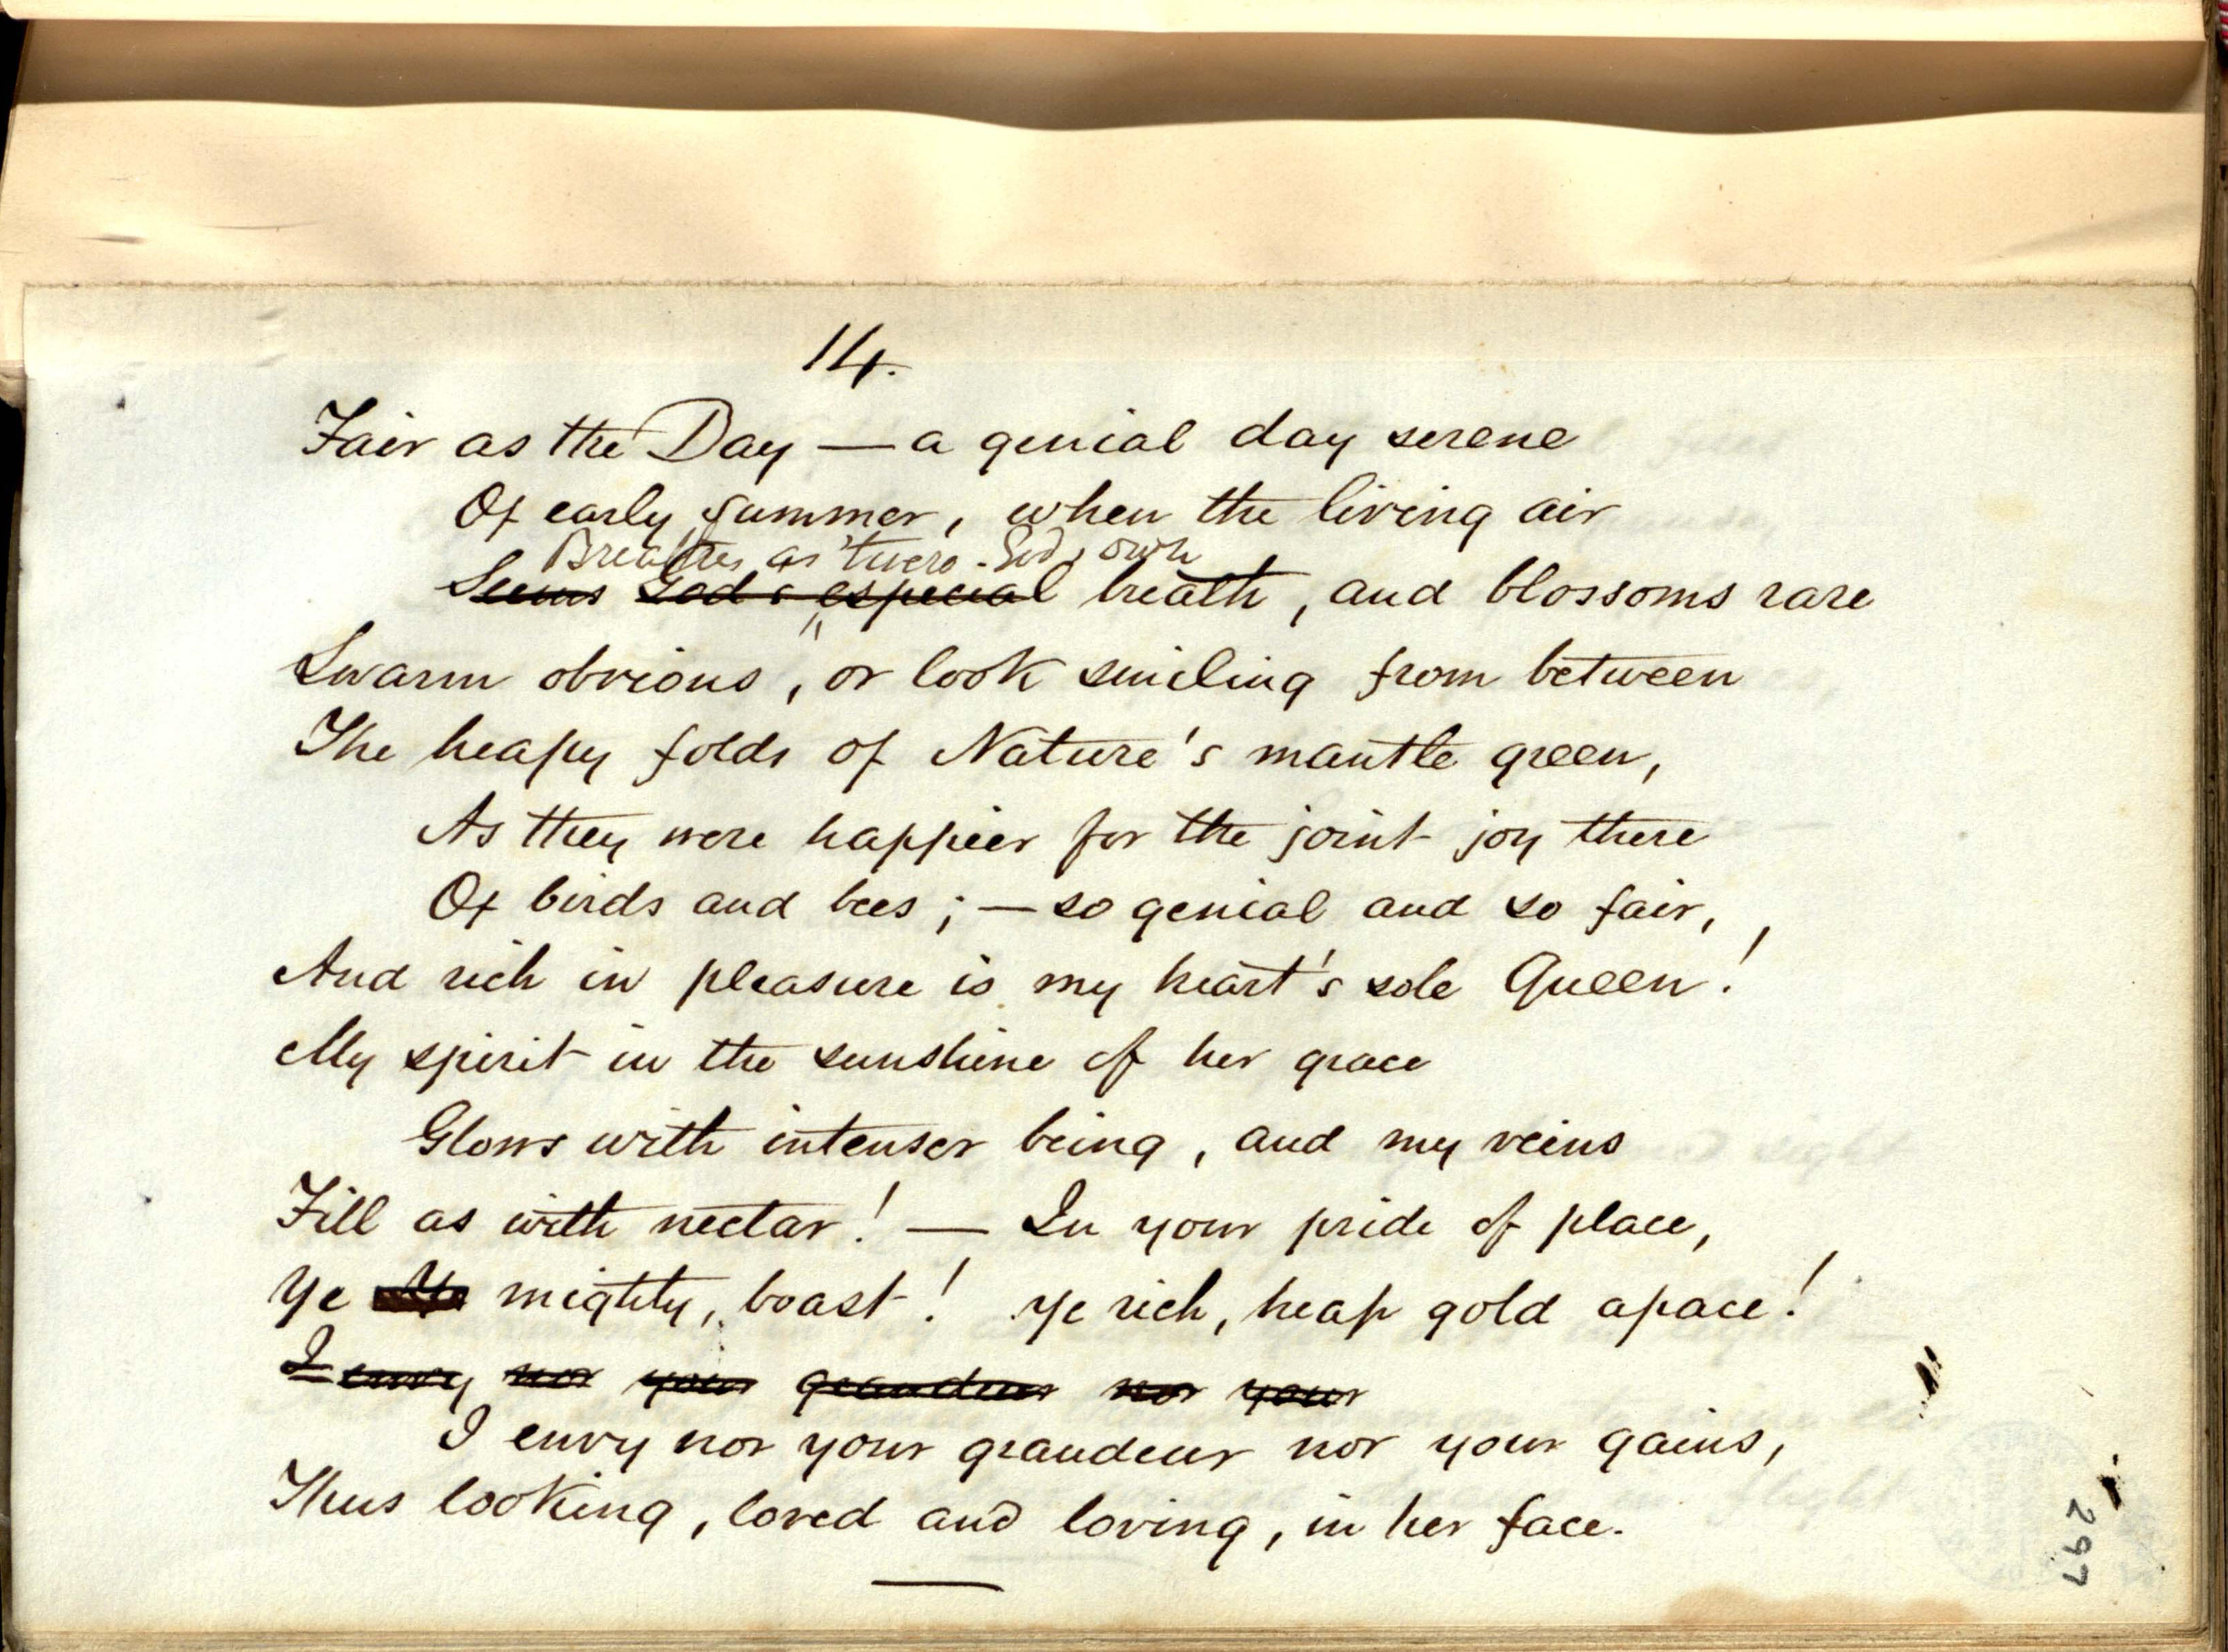 14.
Fair as the Day — a genial day serene
Of early summer, when the living air
Breathes as 'twere God's own
Seems God's especial breath, and blossoms rare
Swarm obvious, or look smiling from between
The heapy folds of Nature's mantle green,
As they were happier for the joint joy there
Of birds and bees; — so genial and so fair,
And rich in pleasure is my heart's sole Queen!
My spirit in the sunshine of her grace
Glows with intenser being, and my veins
Fill as with nectar! — In your pride of place,
Ye mighty, boast! Ye rich, heap gold apace!
I envy nor your grandeur nor your
I envy nor your grandeur nor your gains,
Thus looking, loved and loving, in her face.
297